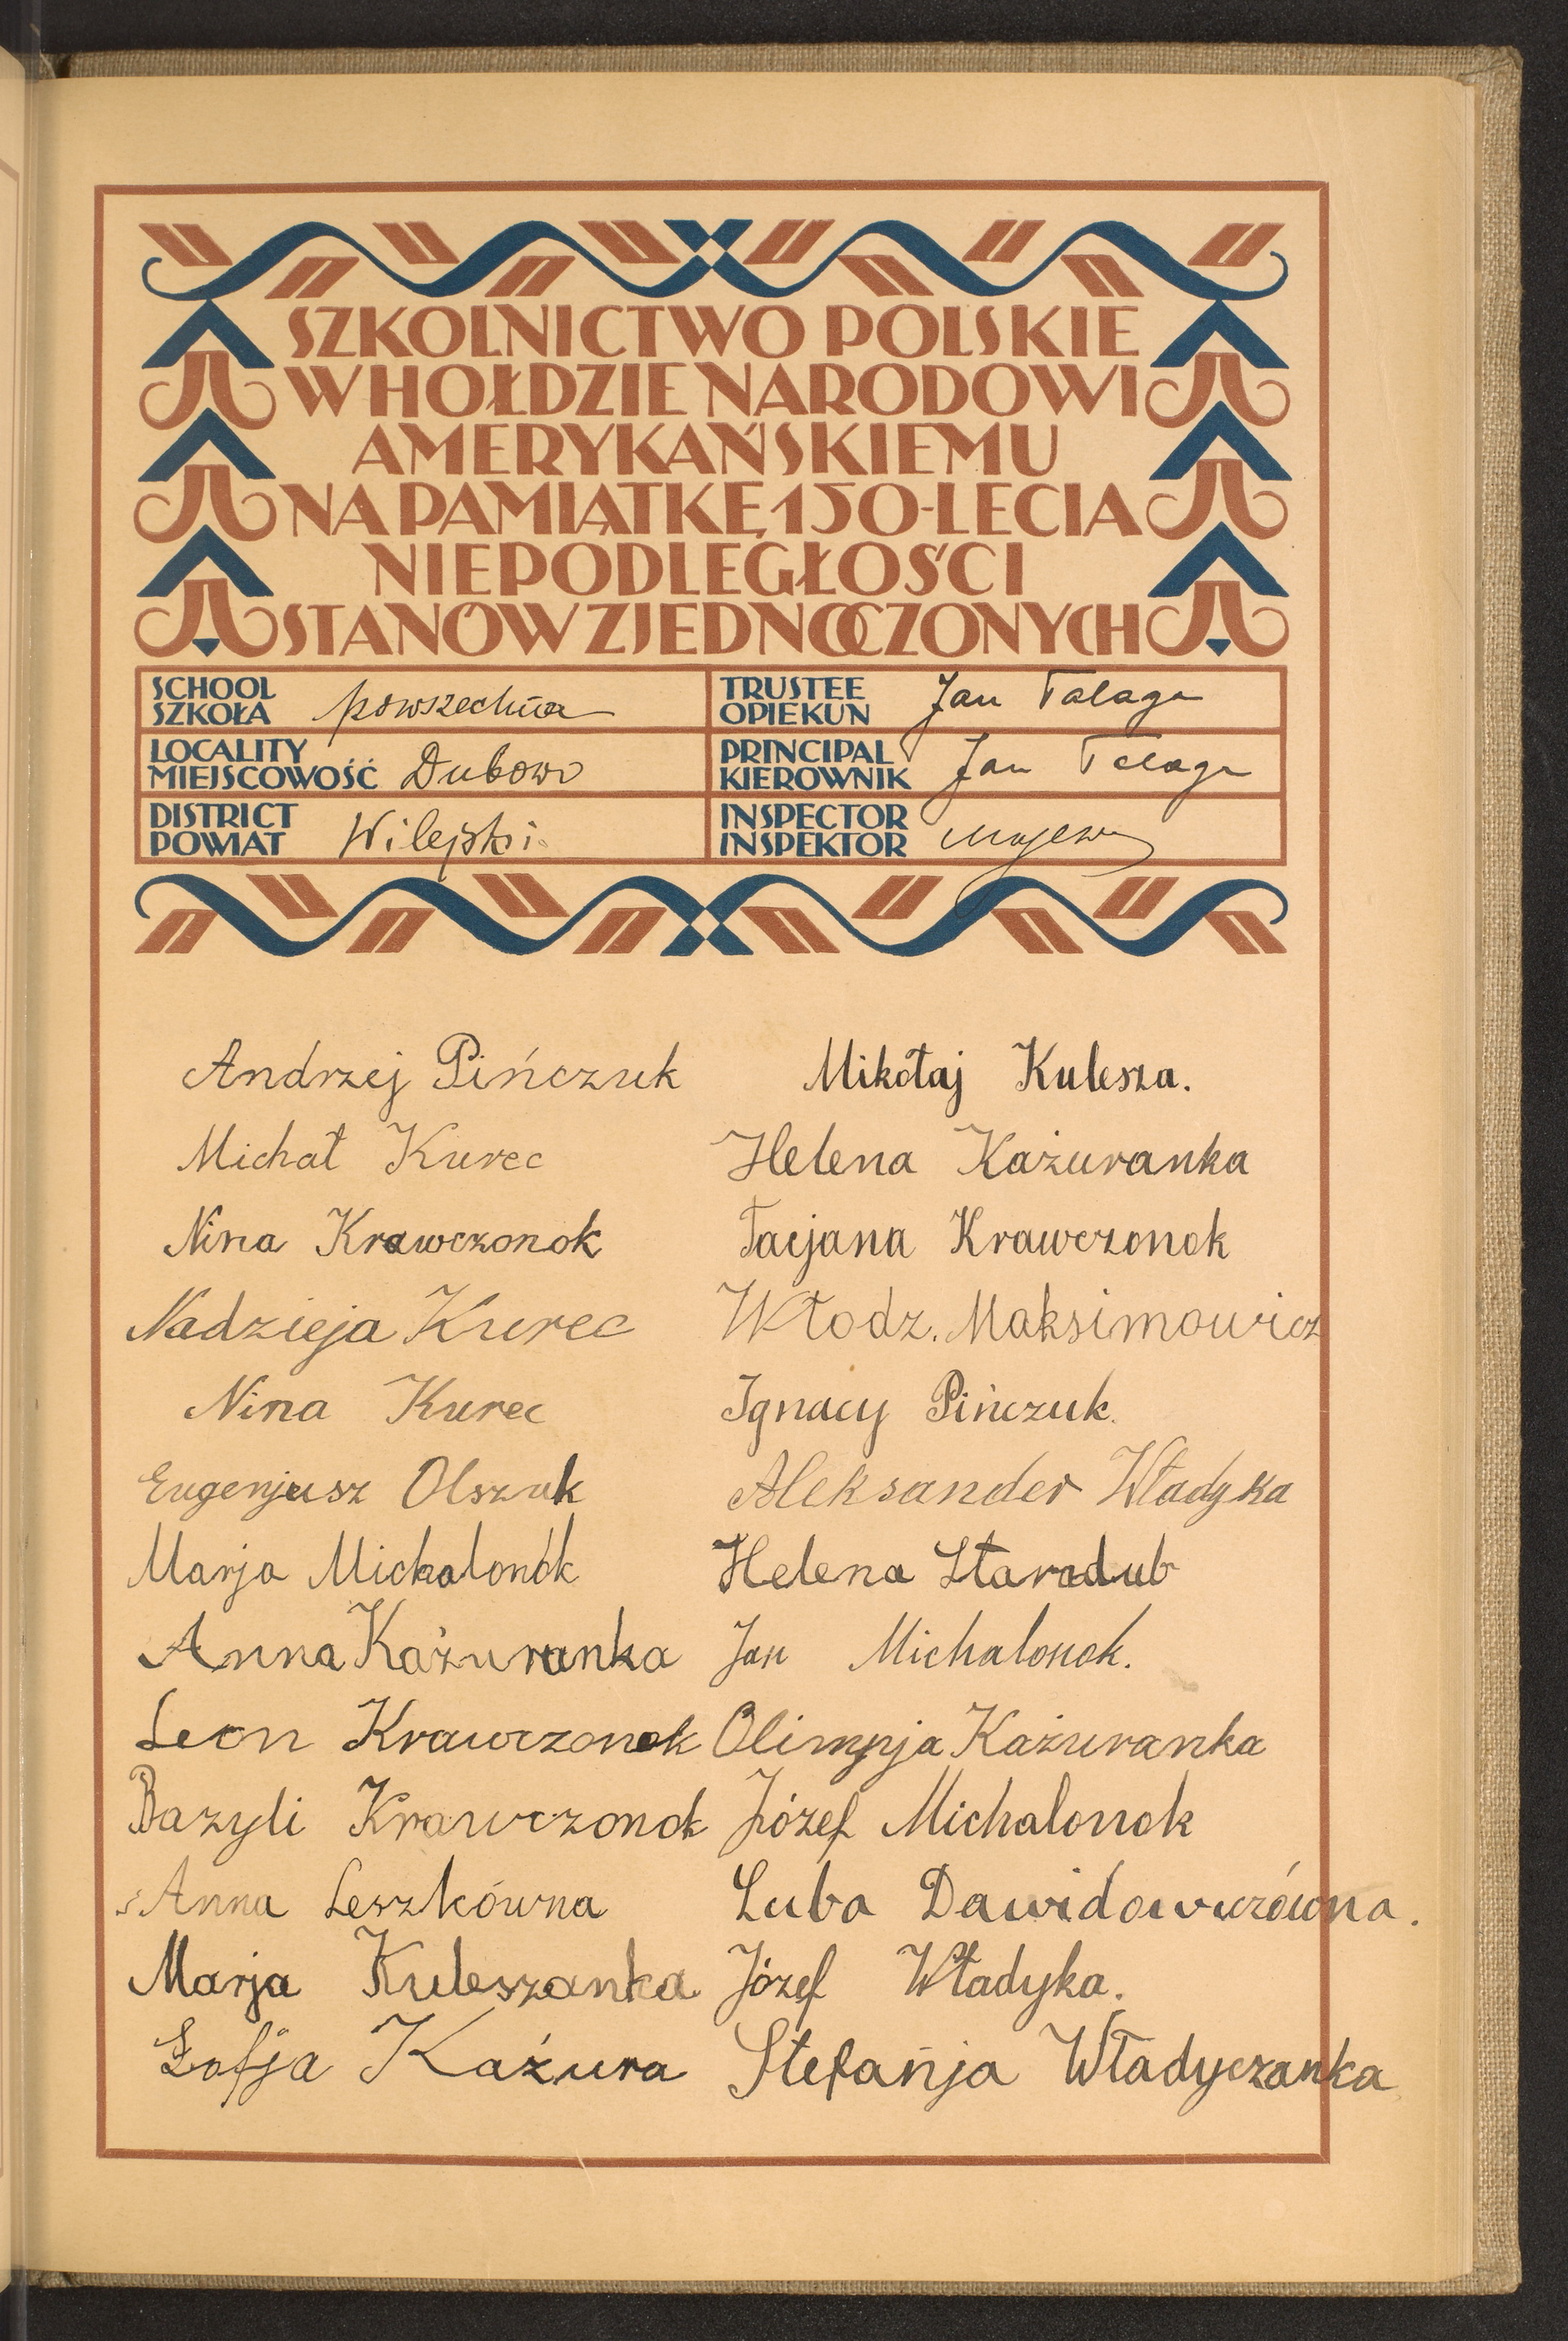 SZKOLNICTWO POLSKIE
W HOŁDZIE NARODOWI
AMERYKAŃSKIEMU
NA PAMIĄTKĘ 150-LECIA
NIEPODLEGŁOŚCI
STANÓW ZJEDNOCZONYCH
SCHOOL
SZKOŁA powszechna
TRUSTEE
OPIEKUN Jan Talaga
LOCALITY
MIEJSCOWOŚĆ Dubowo
PRINCIPAL
KIEROWNIK Jan Talaga
DISTRICT
POWIAT Wilejski
INSPECTOR
INSPEKTOR
Andrzej Pińczuk
Michał Kurec
Nina Krawczonok
Nadzieja Kurec
Nina Kurec
Eugenjusz Olszuk
Marja Michalonok
Anna Każuranka
Leon Krawczonok
Bazyli Krawczonok
Anna Leszkówna
Marja Kuleszanka
Zofja Każura
Mikołaj Kulesza.
Helena Każuranka
Tacjana Krawczonok
Włodz. Maksimowicz
Ignacy Pińczuk.
Aleksander Władyka
Helena Staradub
Jan Michalonok.
Olimpja Każuranka
Józef Michalonok
Luba Dawidowiczówna.
Józef Władyka.
Stefanja Władyczanka